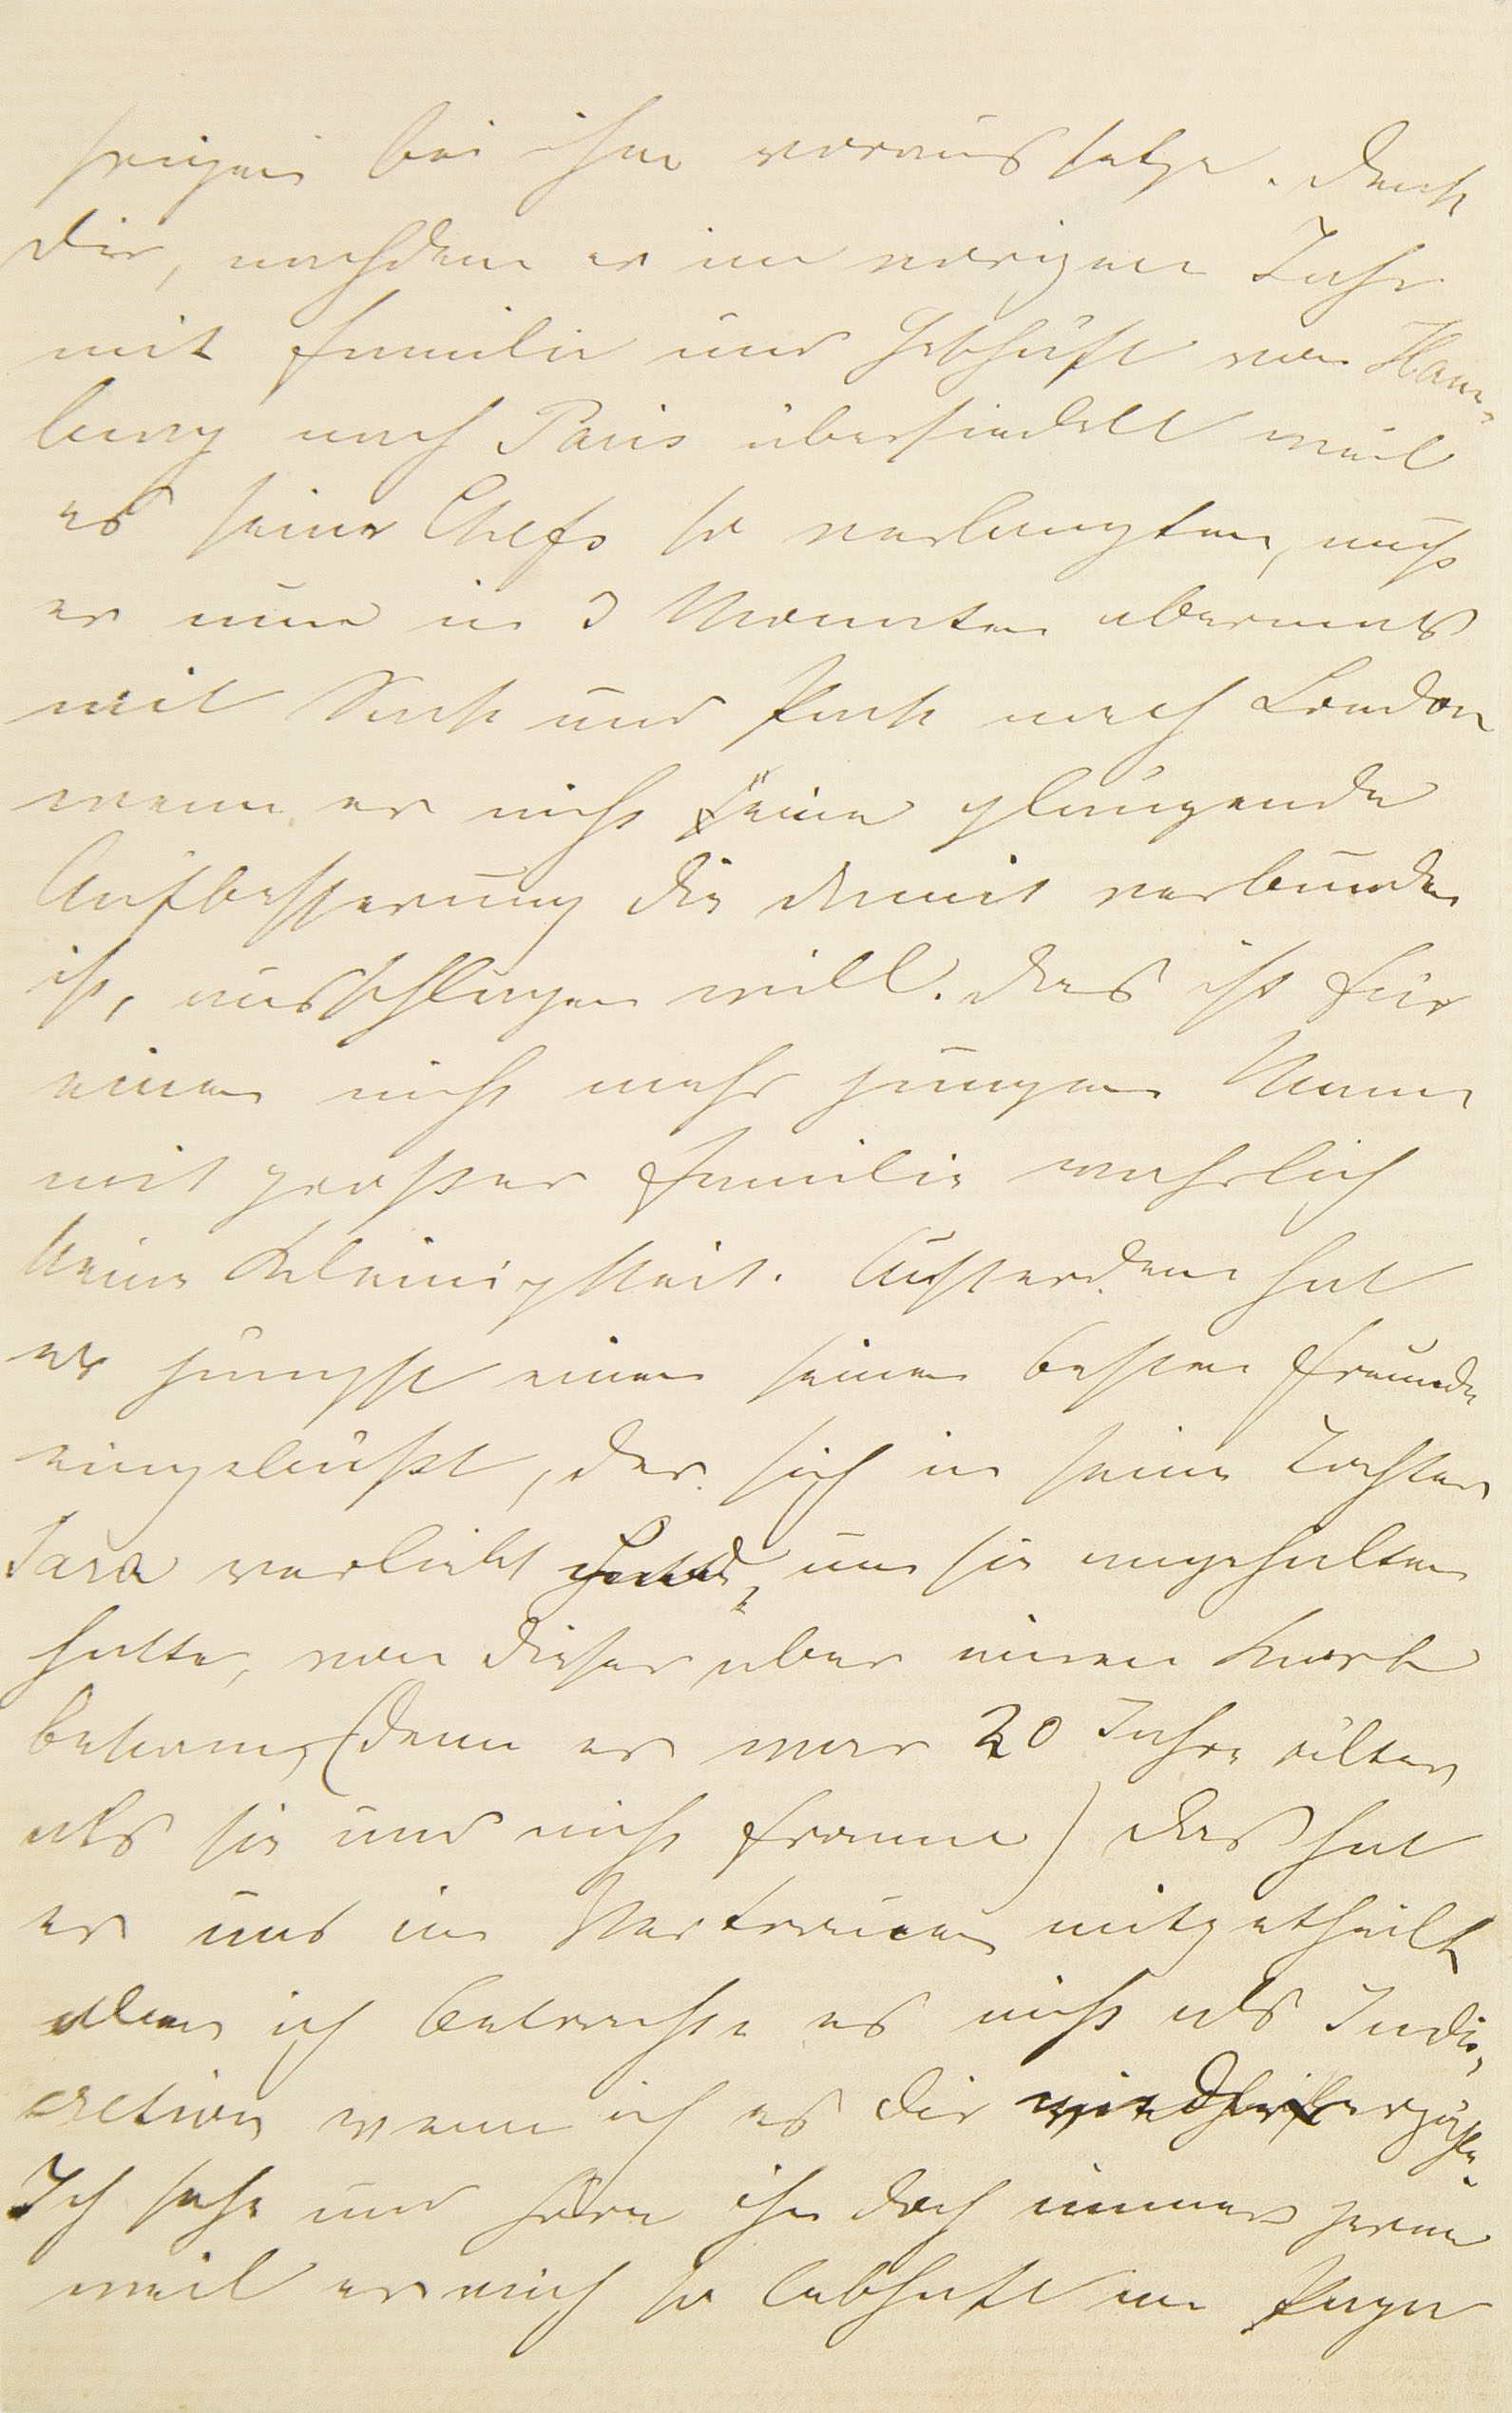 bei ihm voraus setze. Denk
Dir, nachdem er im vorigen Jahr
mit Familie und Geschäft von Ham-
burg nach Paris übersiedelt weil
es seine Chefs so verlangten, muß
er nun in 3 Monaten abermals
mit Sack und Pack nach London
wenn er nicht eine glänzende
Aufbesserung die damit verbunden
ist, ausschlagen will. Das ist für
einen nicht mehr jungen Mann
mit großer Familie wahrlich
keine Kleinigkeit. Außerdem hat
er jüngst einen seiner besten Freunde
eingebüßt, der sich in seine Tochter
Sara verliebt um sie angehalten
hatte, von dieser aber einen Korb
bekam, (denn er war 20 Jahre älter
als sie und nicht fromm) das hat
er uns im Vertrauen mitgetheilt
aber ich betrachte es nicht als Indis-
cretion wenn ich es Dir erzähle.
Ich sehe und höre ihn doch immer gerne
weil er mich so lebhaft an Papa